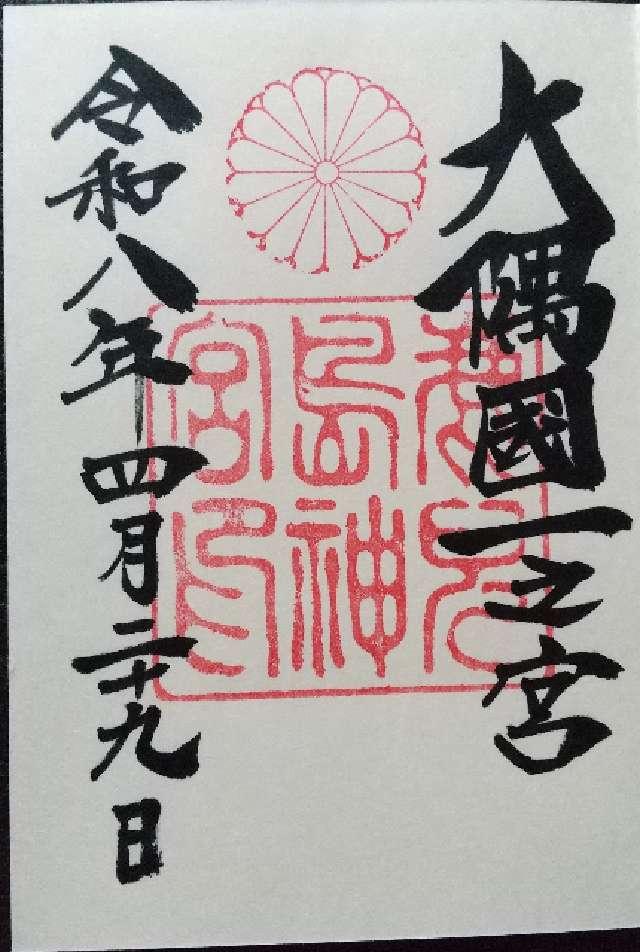 大隅國一之宮
鹿兒島神宮印
令和八年四月二十九日